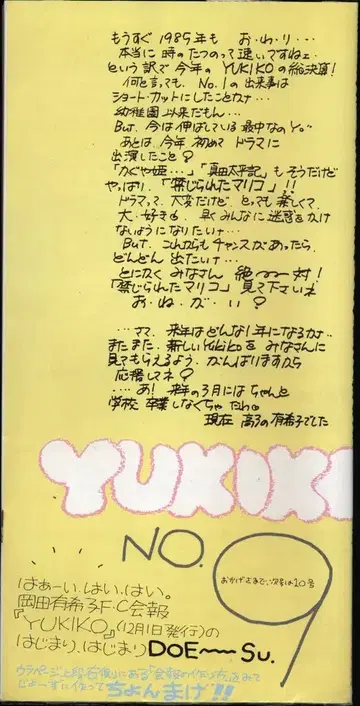 もうすぐ1985年も お・わ・り・・・
本当に時のたつのって速いですねェ
という訳で今年のYUKIKOの総決算!
何と言っても、No.1の出来事は
ショート・カットにしたことかナ・・・
幼稚園以来だもん・・・
But、今は伸ばしている最中なのYo。
あとは、今年初めてドラマに
出演したこと?
「かぐや姫・・・」「真田太平記」もそうだけど
やっぱり、「禁じられたマリコ」!!
ドラマって、大変だけど、とっても楽しくて
大・好き。早くみんなに迷惑をかけ
ないようになりたいナ・・・
But、これからもチャンスがあったら
どんどん出たいナ・・・
とにかくみなさん 絶〜〜対!
「禁じられたマリコ」見て下さいネ
お・ね・が・い?
・・・さて、来年はどんな1年になるかナ・・
またまた、新しいYukikoをみなさんに
見てもらえるよう、がんばりますから
応援してネ?
・・・あ!来年の3月にはちゃんと
学校卒業しなくちゃ
現在 高3の有希子でした
YUKIK
NO.9
おかげさまで、次号は10号
はぁーい、はい、はい。
岡田有希子F・C会報
『YUKIKO』(12月1日発行)の
はじまり、はじまりDOE〜〜Su.
ウラページ上段右側にある「会報の作り方」をみて
じょーずに作ってちょんまげ!!